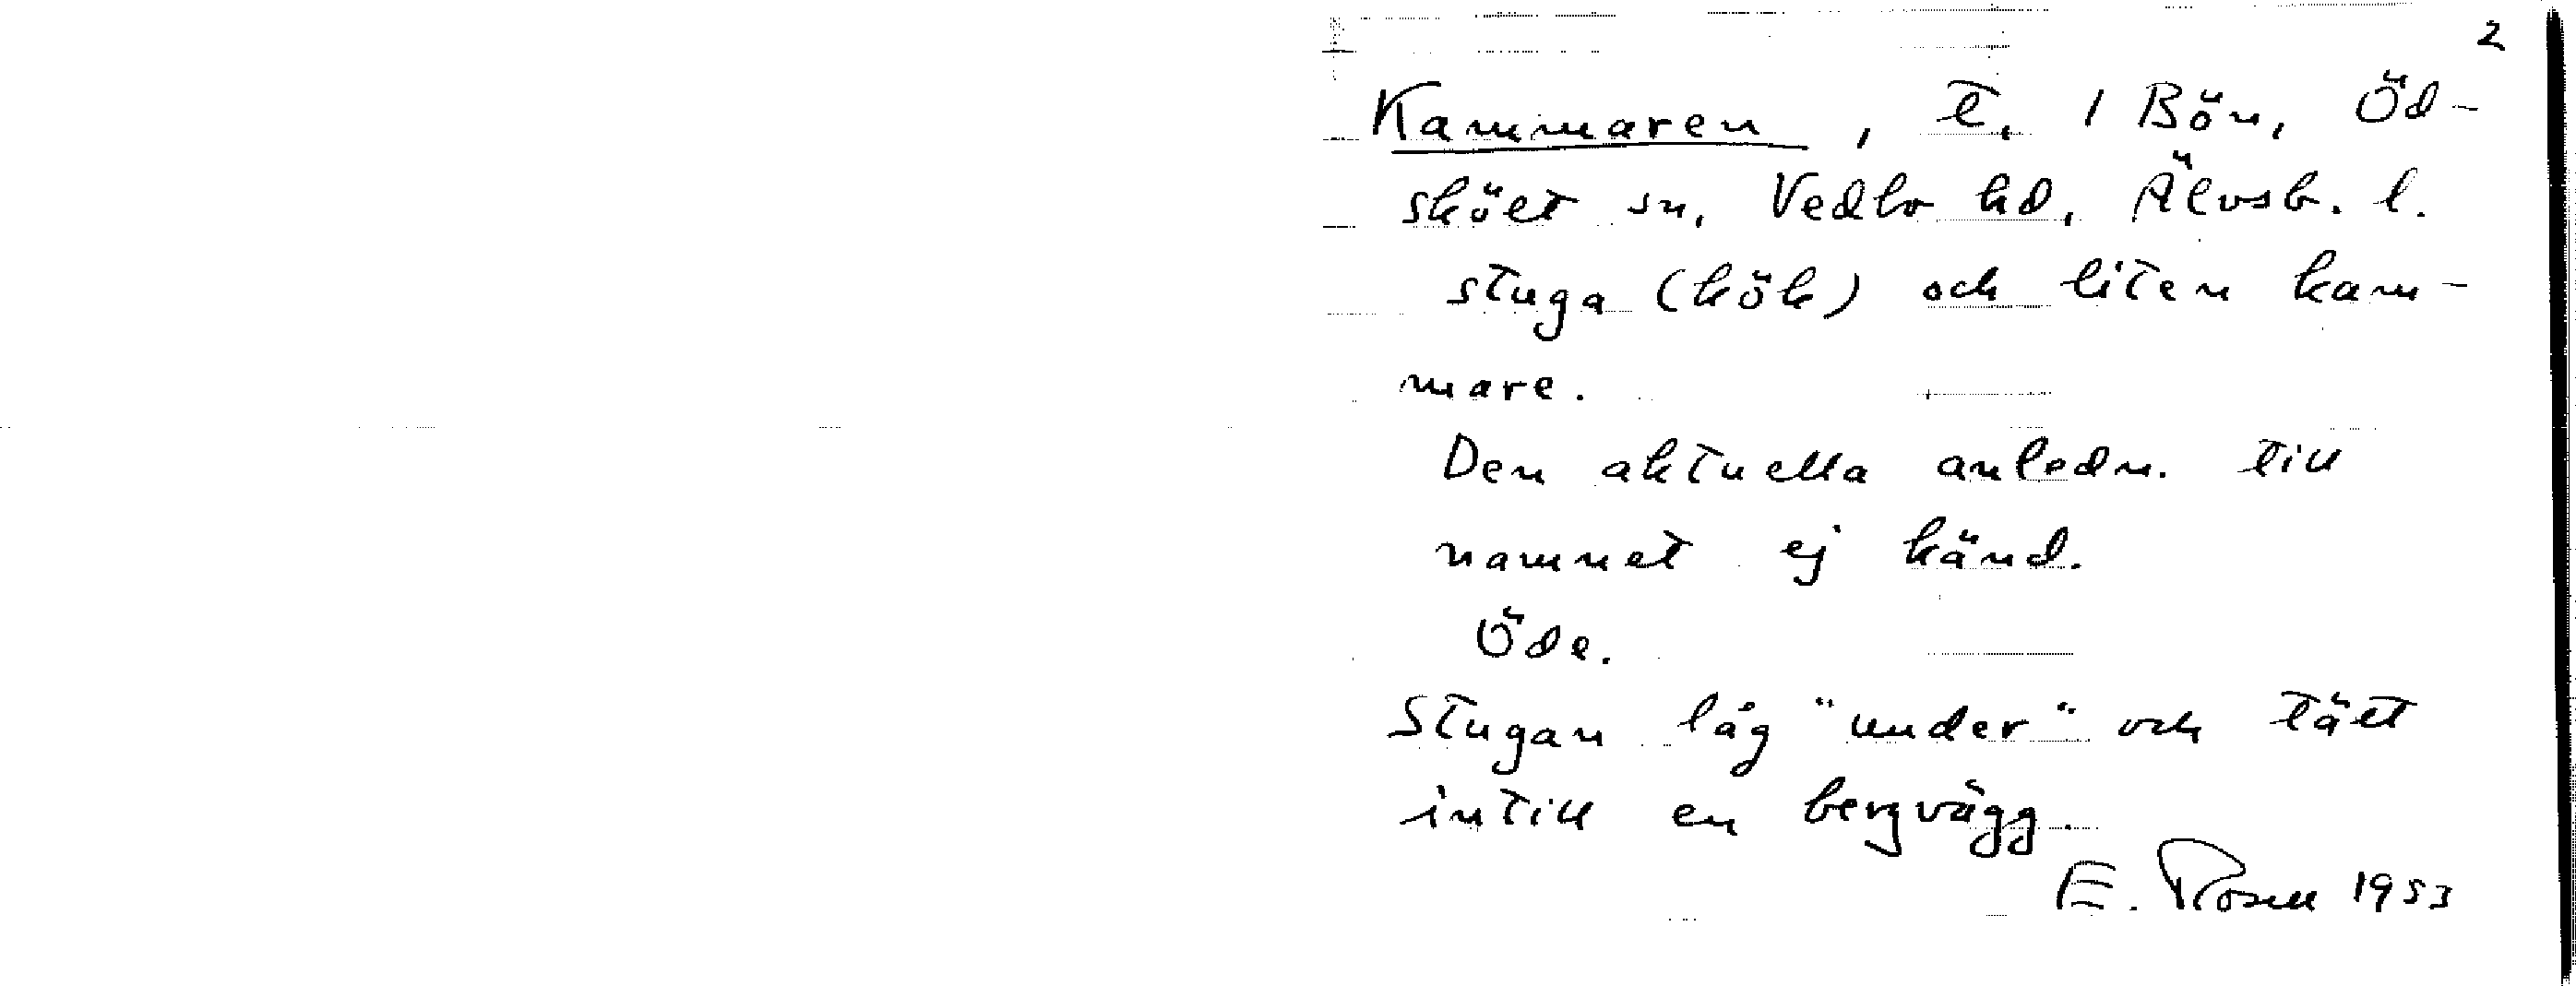 2
Kammaren, t. 1 Bön, Öd-
skölt sn, Vedbo hd, Älvsb. l.
stuga (kök) och liten kam-
mare.
Den aktuella anledn. till
namnet ej känd.
Öde.
Stugan låg "under" och tätt
intill en bergvägg.
E. Rosell 1953